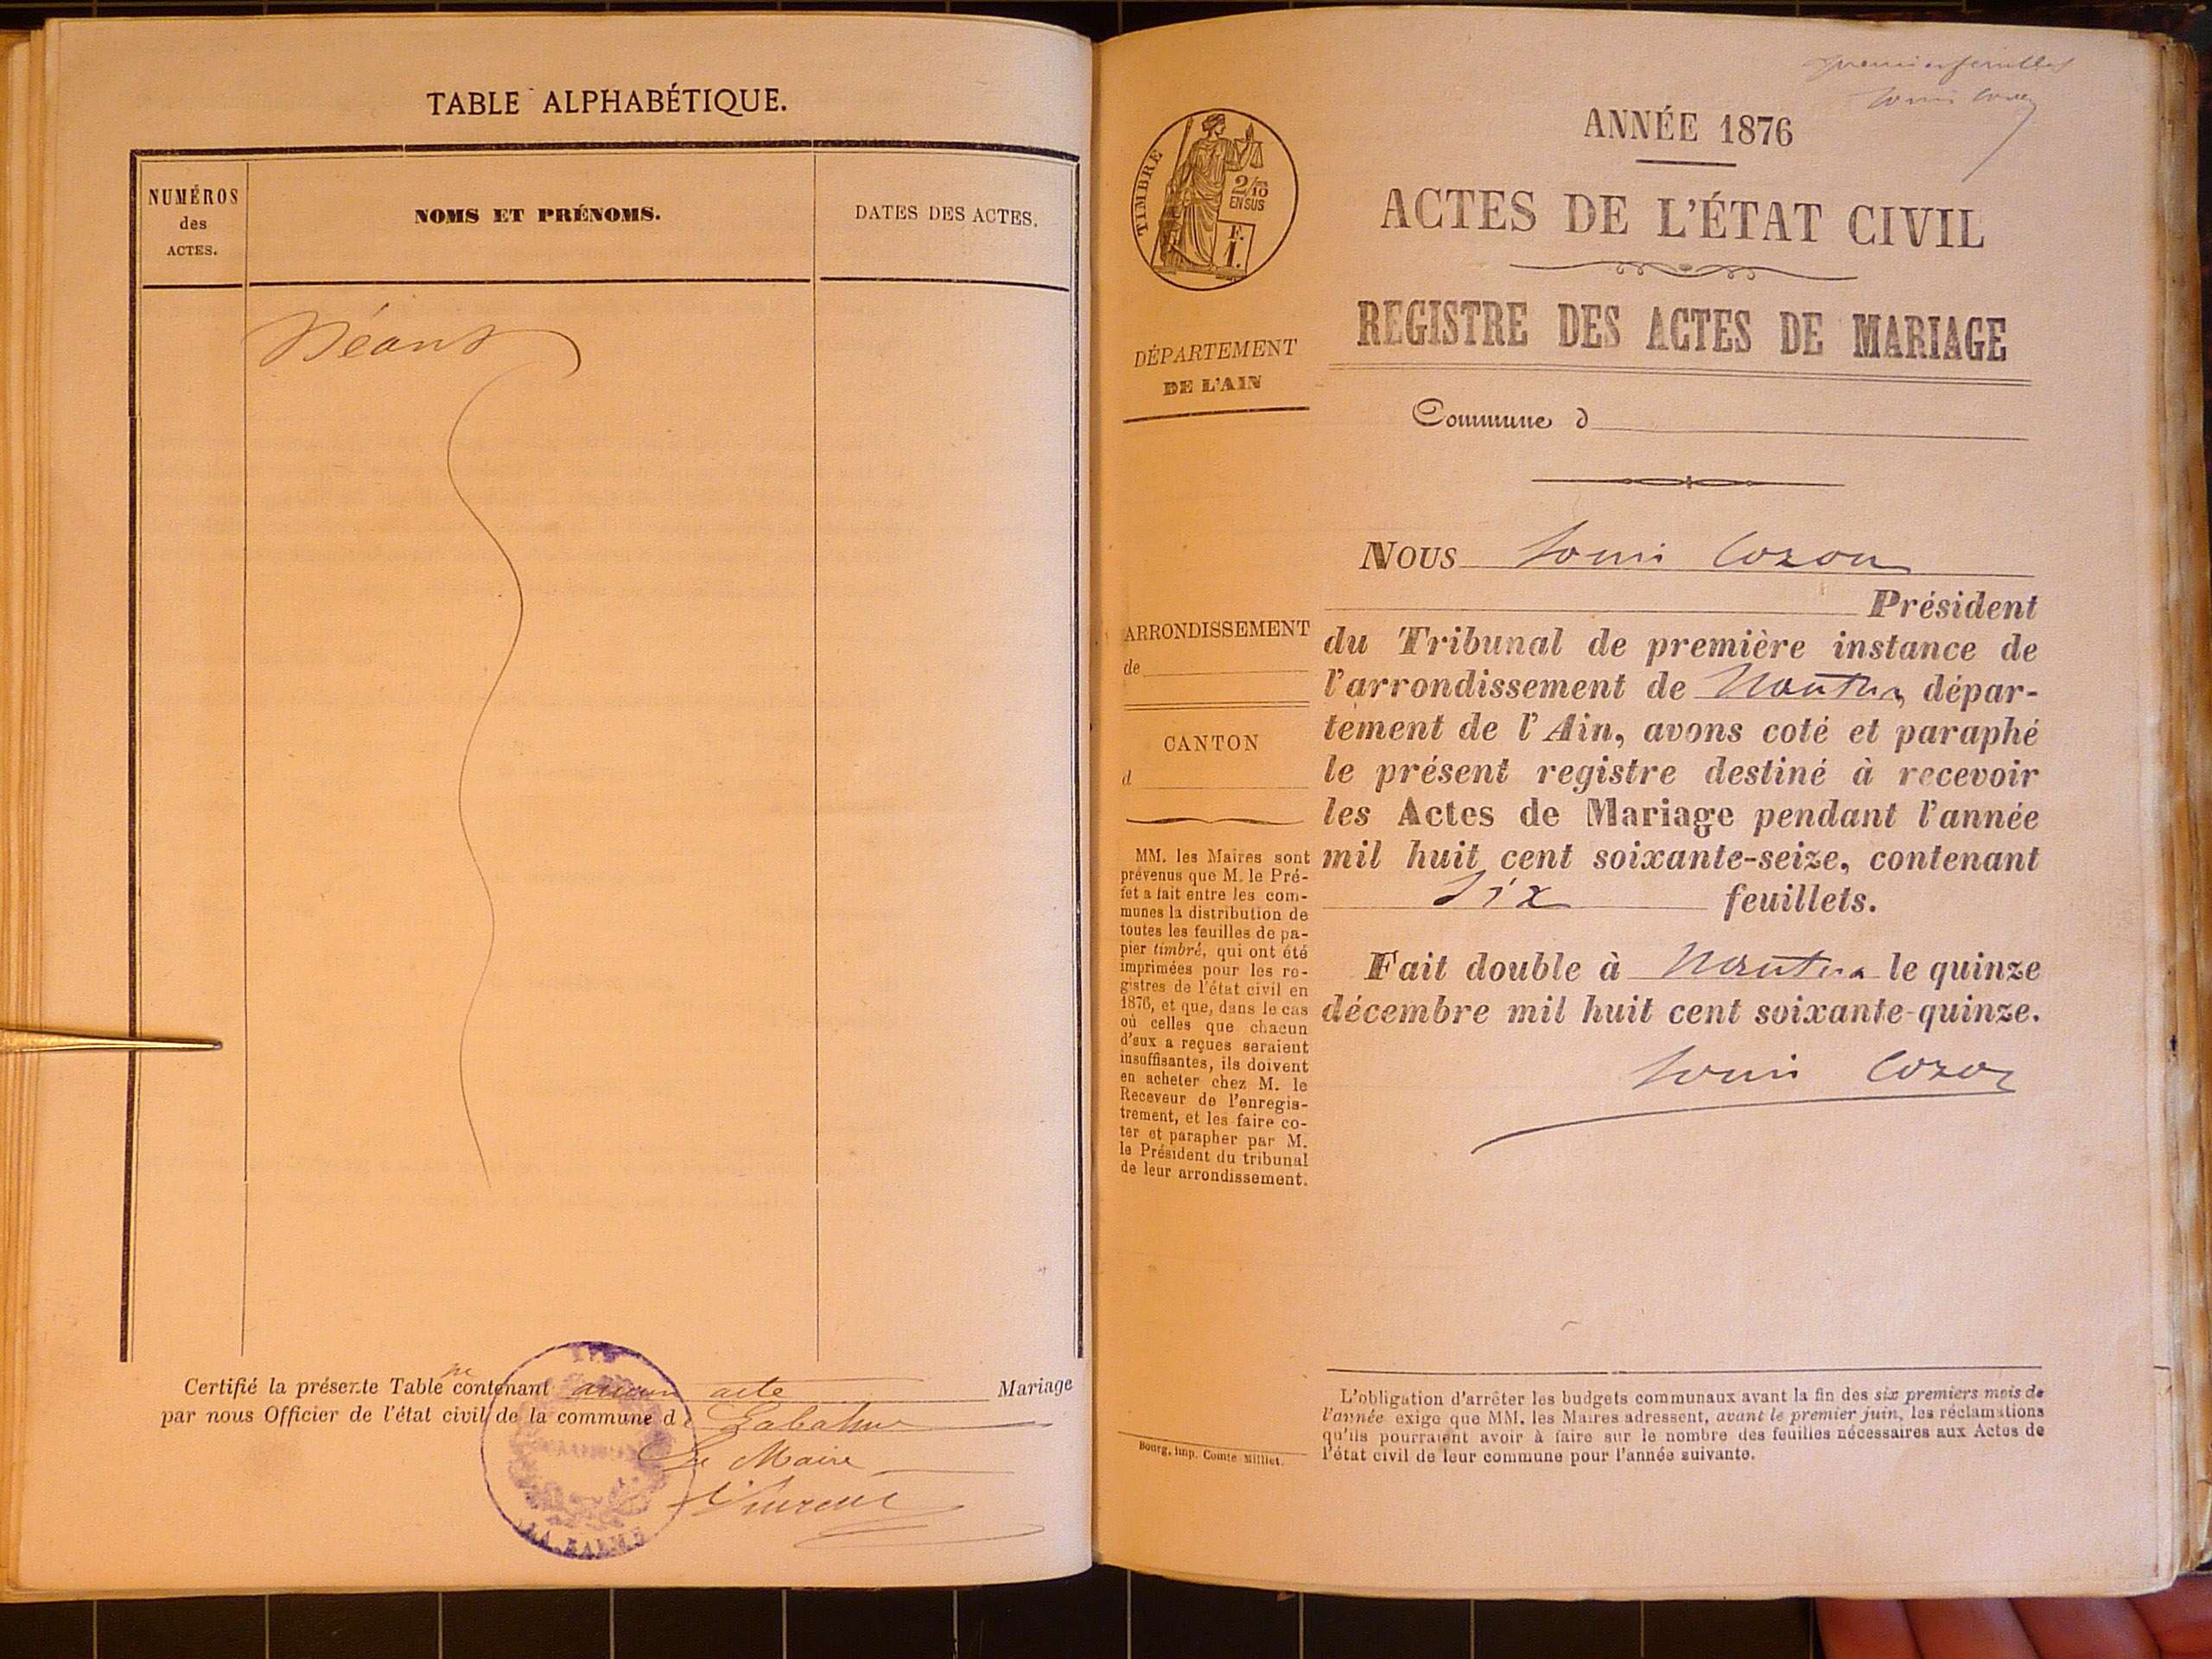 TABLE ALPHABÉTIQUE.
NUMÉROS
des
ACTES.
NOMS ET PRÉNOMS.
DATES DES ACTES.
Néant
Certifié la présente Table ne contenant aucun acte Mariage
par nous Officier de l'état civil de la commune de Labalme
Le Maire
LA BALME
premier feuillet
Louis Cozon
TIMBRE
2/10
EN SUS
F.
1.
ANNÉE 1876
ACTES DE L'ÉTAT CIVIL
REGISTRE DES ACTES DE MARIAGE
DÉPARTEMENT
DE L'AIN
Commune d
ARRONDISSEMENT
de
CANTON
d
MM. les Maires sont
prévenus que M. le Pré-
fet a fait entre les com-
munes la distribution de
toutes les feuilles de pa-
pier timbré, qui ont été
imprimées pour les re-
gistres de l'état civil en
1876, et que, dans le cas
où celles que chacun
d'eux a reçues seraient
insuffisantes, ils doivent
en acheter chez M. le
Receveur de l'enregis-
trement, et les faire co-
ter et parapher par M.
le Président du tribunal
de leur arrondissement.
Bourg, imp. Comte Milliet.
Nous Louis Cozon
Président
du Tribunal de première instance de
l'arrondissement de Nantua, dépar-
tement de l'Ain, avons coté et paraphé
le présent registre destiné à recevoir
les Actes de Mariage pendant l'année
mil huit cent soixante-seize, contenant
six feuillets.
Fait double à Nantua le quinze
décembre mil huit cent soixante-quinze.
Louis Cozon
L'obligation d'arrêter les budgets communaux avant la fin des six premiers mois de
l'année exige que MM. les Maires adressent, avant le premier juin, les réclamations
qu'ils pourraient avoir à faire sur le nombre des feuilles nécessaires aux Actes de
l'état civil de leur commune pour l'année suivante.